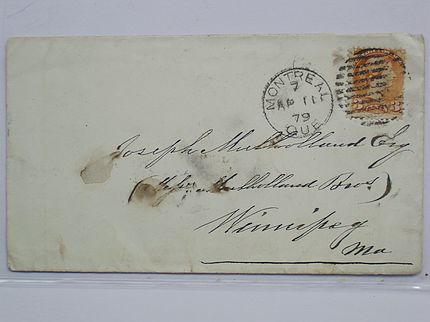 MONTREAL
7
AP 11
79
QUE
Joseph Mulholland Esq
Mulholland Bros)
Winnipeg
Ma